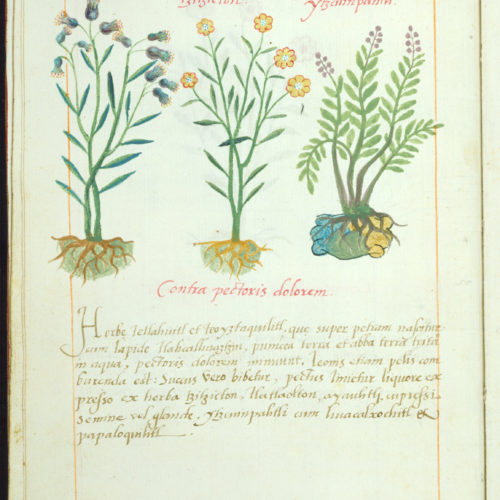 tzitzicton. Ytzcuinpahtli.
Contra pectoris dolorem.
Herbe tetlahuitl et teoyztaquilitl, que super petram nascitur
cum lapide tlahcalhuatzin, punicea terra et alba terra trita
in aqua, pectoris dolorem minuunt. Leonis etiam pelis com
burenda est. Sucus vero bibetur, pectus linietur liquore ex
presso ex herba tzitzicton, tlatlaolton, ayauhtli, cupressi
semine vel glande, Ytzcuinpahtli cum huacalxochitl &
papaloquilitl.